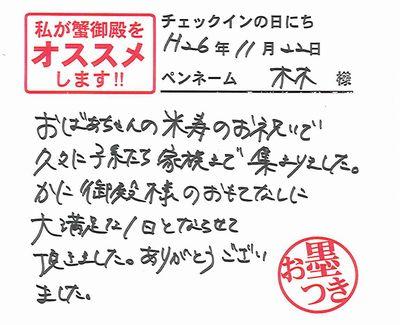 私が蟹御殿を
オススメ
します!!
チェックインの日にち
H26年11月22日
ペンネーム 林 様
おばあちゃんの米寿のお祝いで
久々に子孫たち家族まで集まりました。
かに御殿様のおもてなしに
大満足な1日とならせて
頂きました。ありがとうござい
ました。
お墨つき